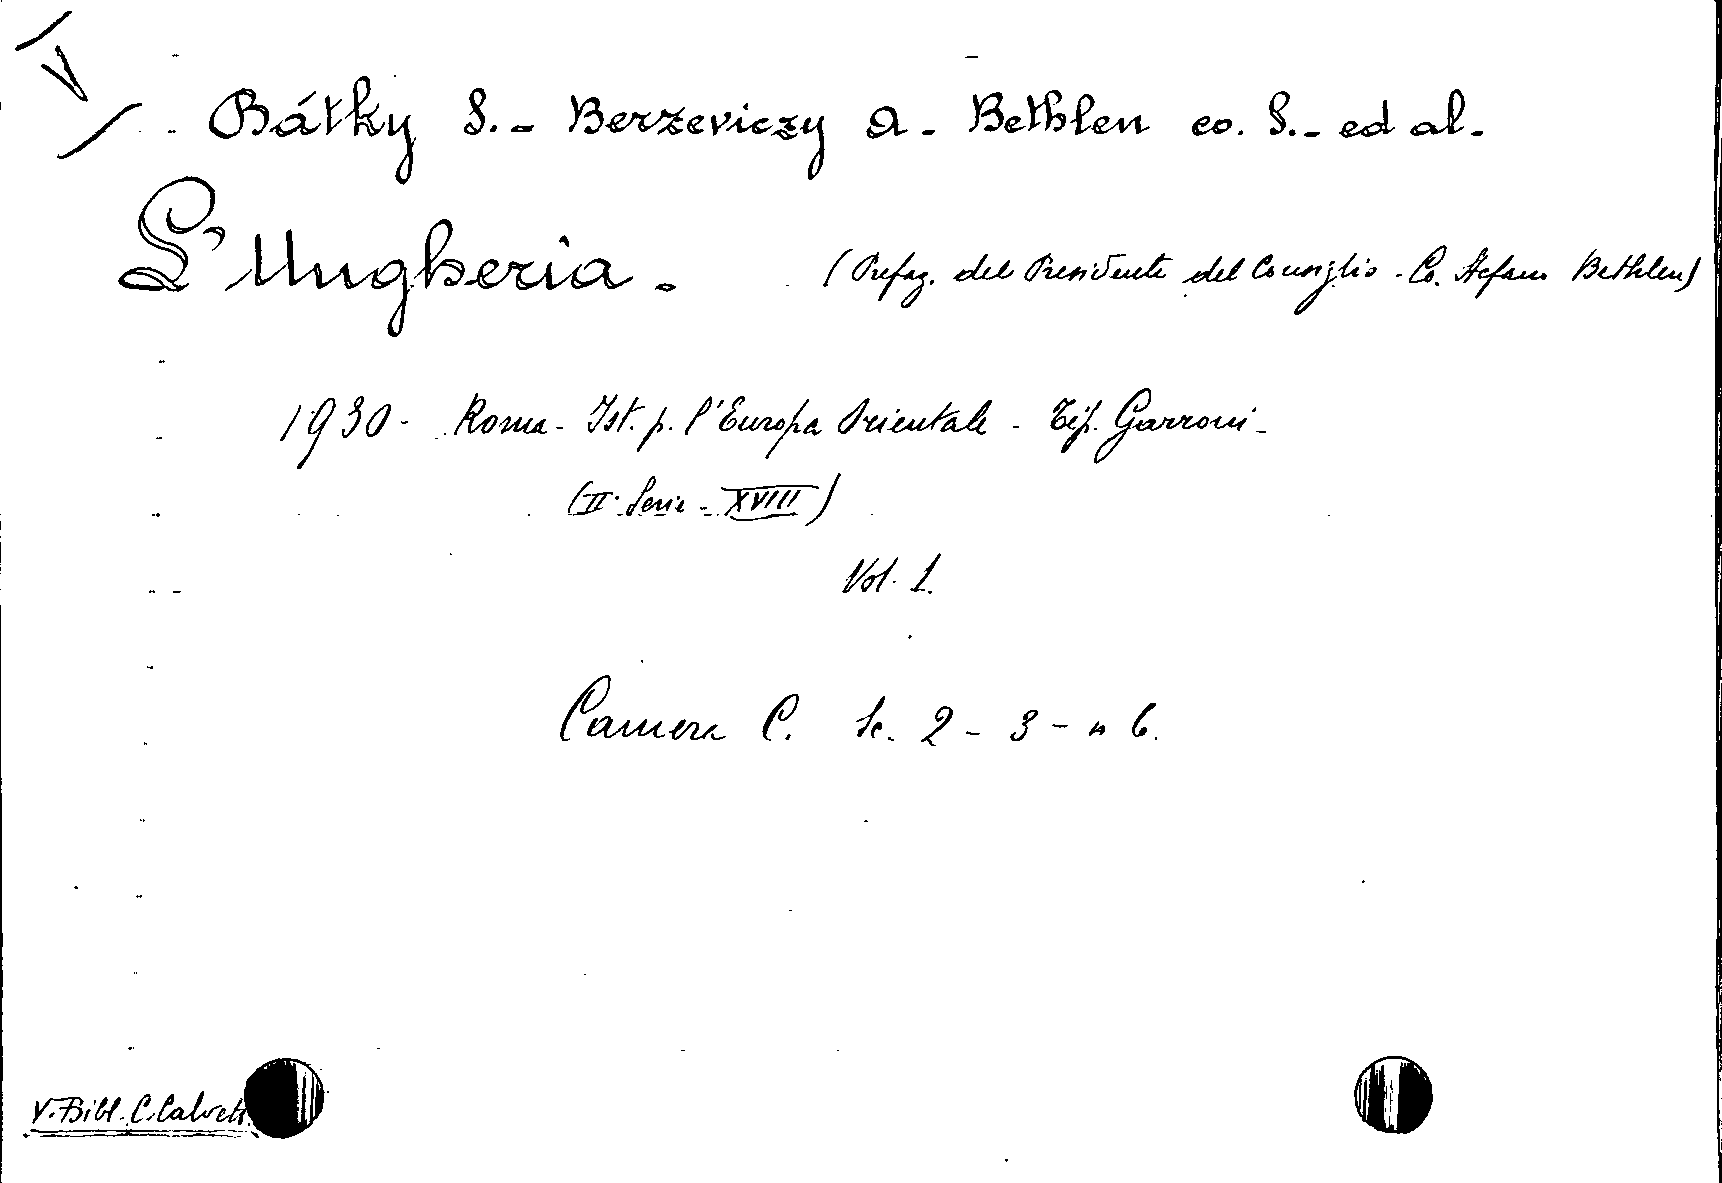 Bátky S. - Berzeviczy A - Bethlen co. S. - ed al.
L'Ungheria. (Prefaz. del Presidente del Consiglio - Co. Stefano Bethlen)
1930 - Roma - Ist. p. l'Europa Orientale - Tip. Garroni -
(II Serie - XVIII)
Vol. 1.
Camera C. Sc. 2 - 3 - n 6.
V. Bibl. C. Calvett